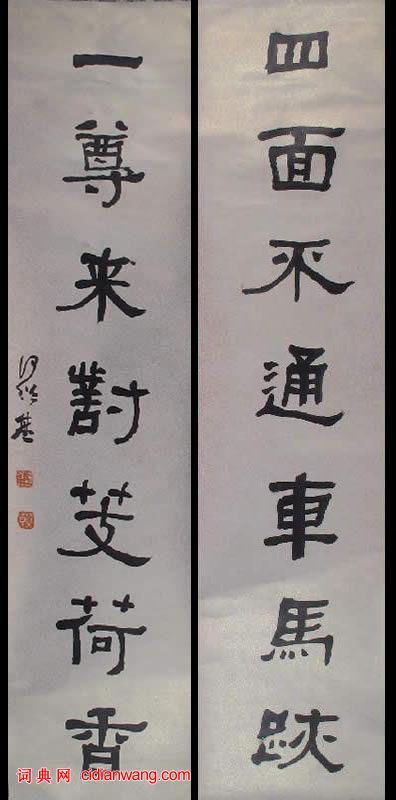 四面不通車馬跡
一尊来對芰荷香
何紹基
词典网 cidianwang.com